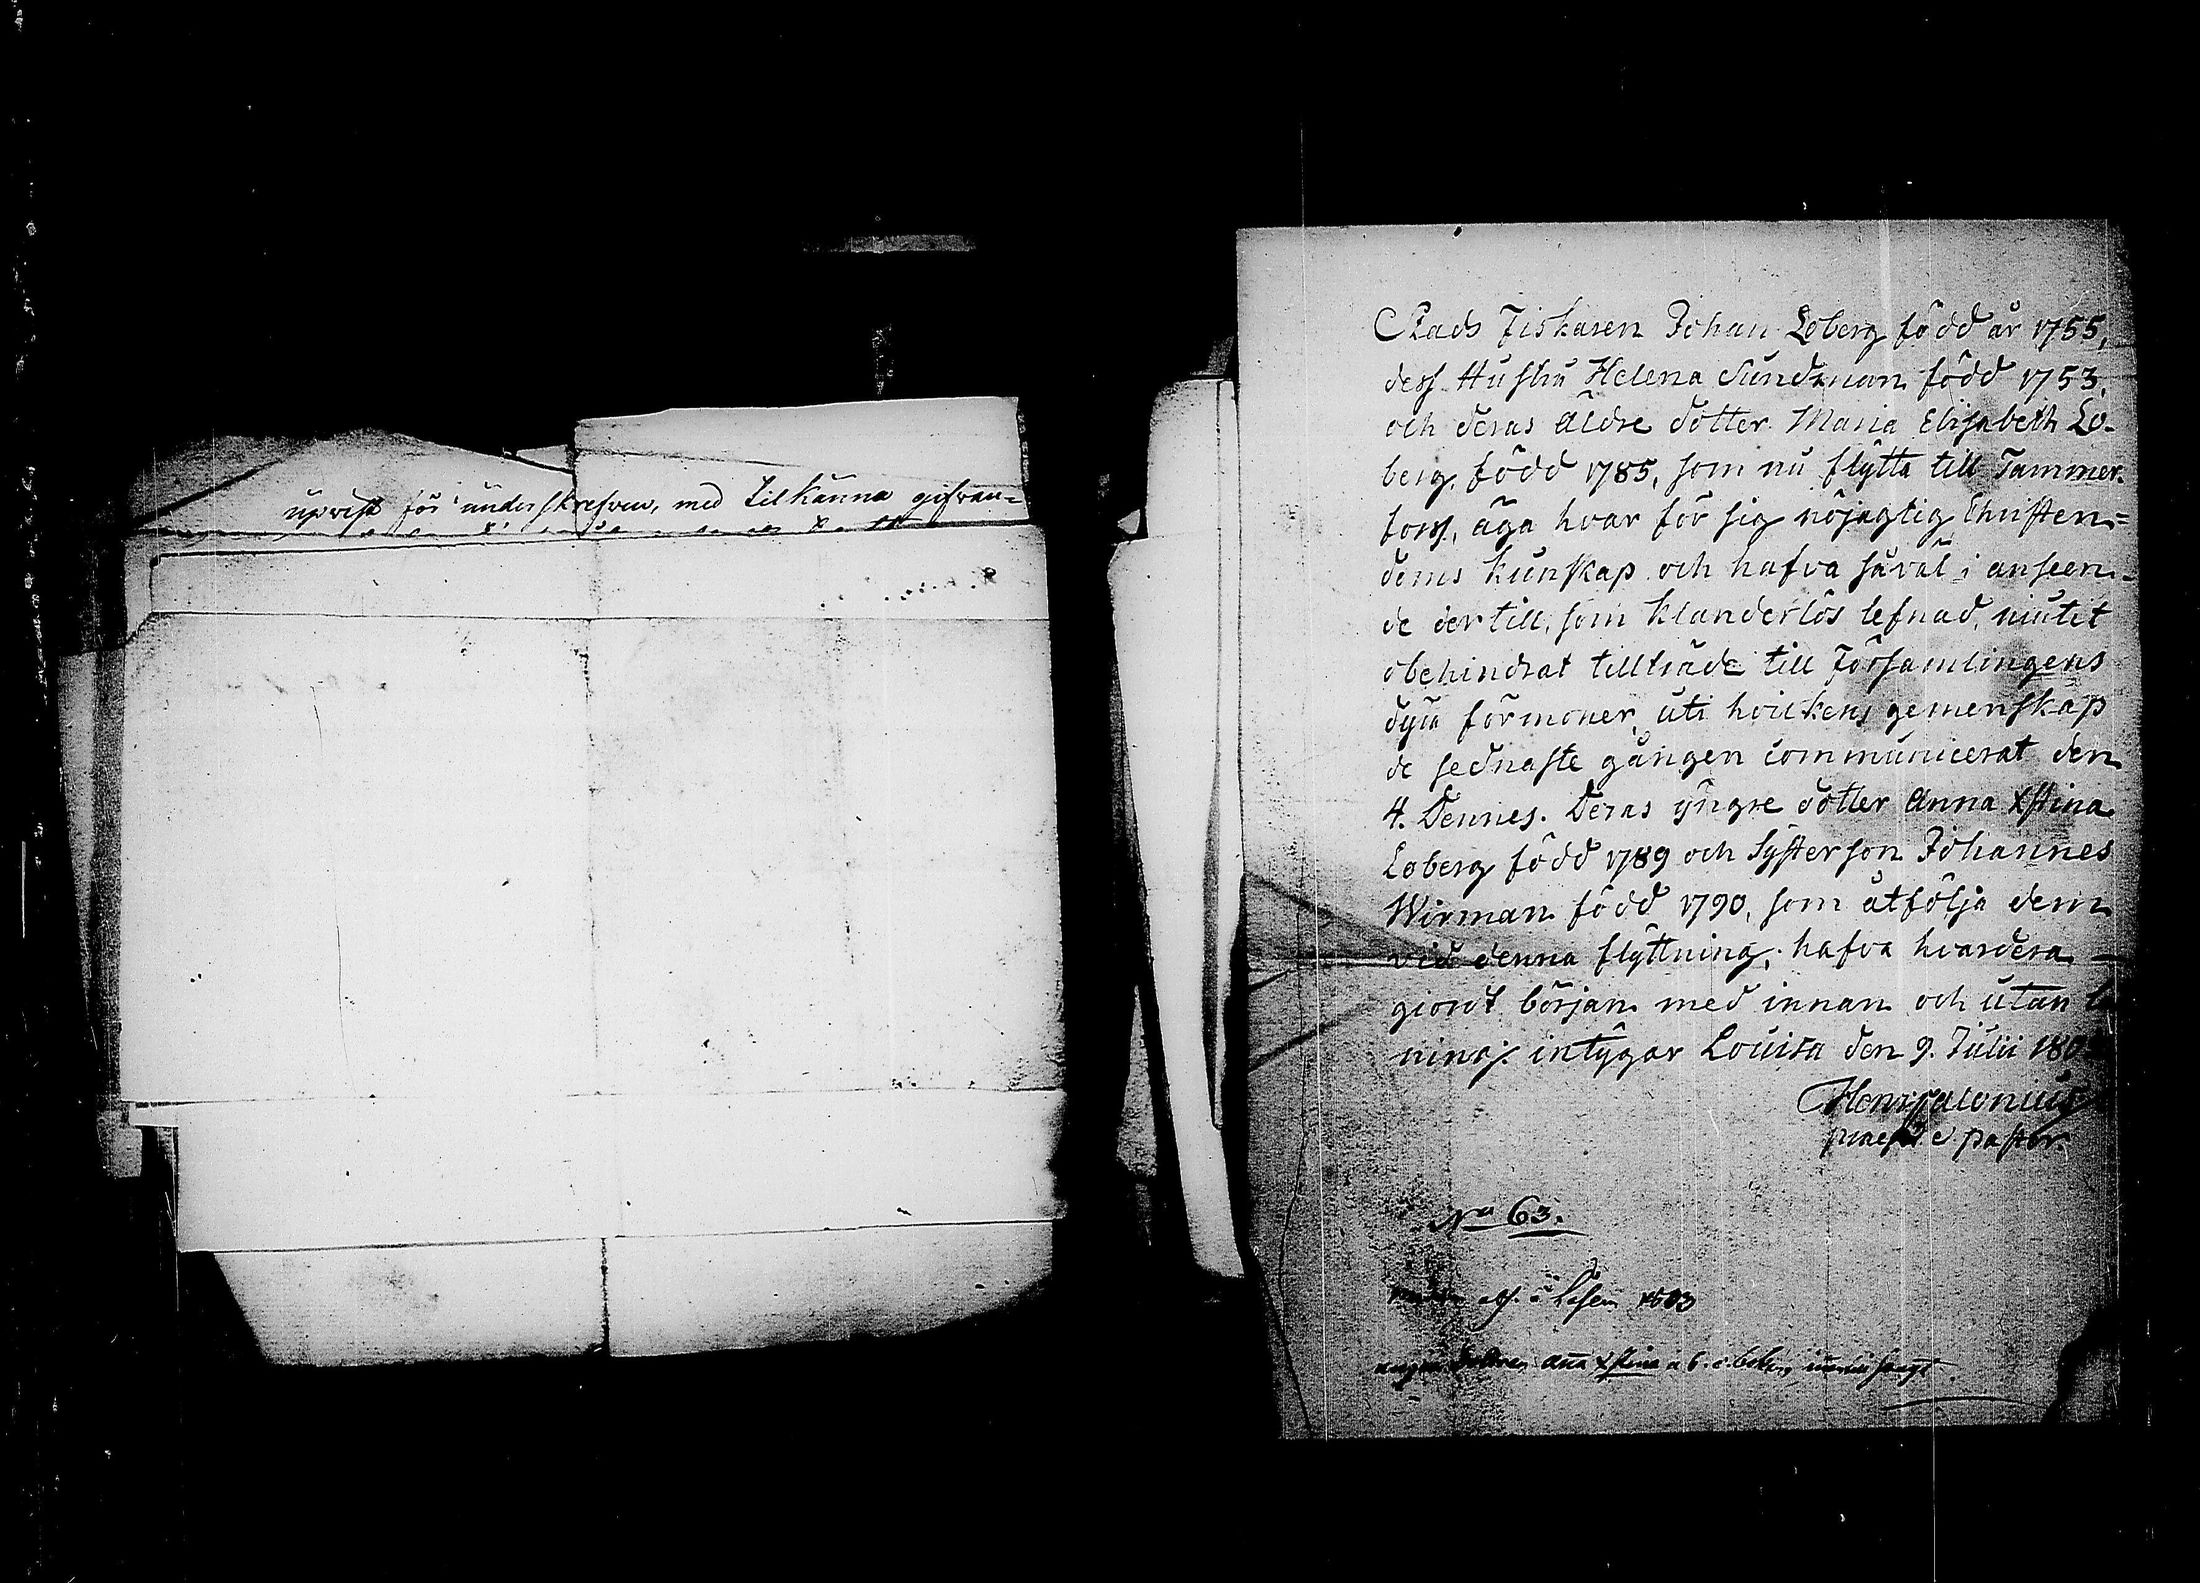 upvist för underskrefven, med tilkänna gifvan=
Stads Fiskaren Johan Loberg född år 1755,
dess Hustru Helena Sundman född 1753,
och deras Äldre dotter Maria Elisabeth Lo-
berg, född 1785, som nu flytta till Tammer-
fors, äga hvar för sig nöjagtig Christen=
doms kunskap och hafva såväl i anseen-
de der till, som klanderlös lefnad, niutit
obehindrat tillträde till Församlingens
dyra förmoner, uti hvilkens gemenskap
de sednaste gången communicerat den
4. Dennes. Deras yngre dotter Anna Xstina
Loberg född 1789 och Systerson Johannes
Wirman född 1790, som åtfölja dem
vid denna flyttning, hafva hvardera
giordt början med innan och utan
ning; intygar Louisa den 9. Julii
Henr Salonius
praeside pastor
No 63.
1803
dottren Ana Xstina